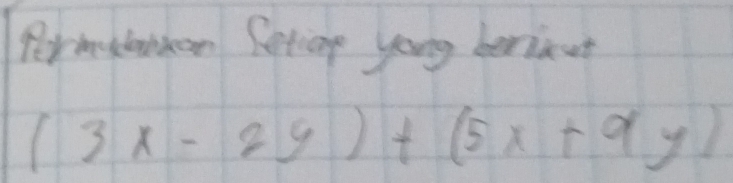 Permudahkan Setiap yang berikut
(3x - 2y) + (5x + 9y)